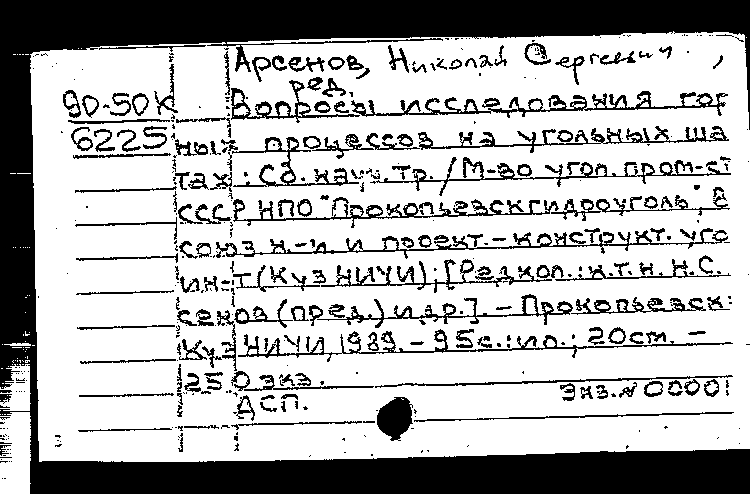 Арсенов, Николай Сергеевич,
ред.
90-50К Вопросы исследования гор
6225 ных процессов на угольных ша
тах: Сб. науч. тр. / М-во угол. пром-ст
СССР, НПО "Прокопьевскгидроуголь", В
союз. н.-и. и проект.-конструкт. уго
ин-т (КузНИУИ); [Редкол.: к.т.н. Н.С.
сенов (пред.) и др.]. - Прокопьевск:
КузНИУИ, 1989. - 95с.: ил.; 20см. -
250 экз.
ДСП. Экз. N 00001